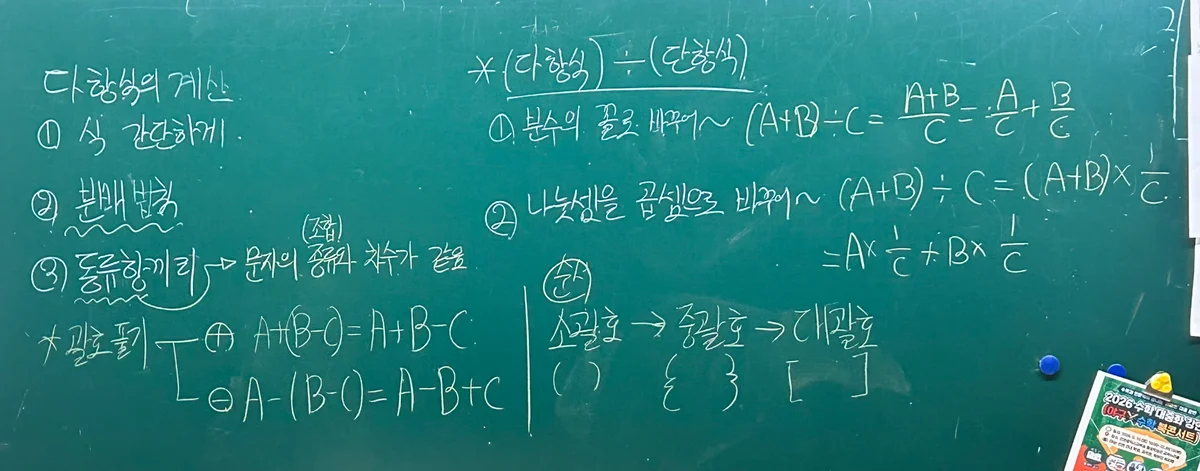 다항식의 계산
① 식 간단하게
② 분배 법칙
③ 동류항끼리 → 문자의 종류와 차수가 같음
(조합)
* 괄호 풀기
⊕ A+(B-C)=A+B-C
⊖ A-(B-C)=A-B+C
*(다항식)÷(단항식)
① 분수의 꼴로 바꾸어~ (A+B)÷C = \frac{A+B}{C} = \frac{A}{C} + \frac{B}{C}
② 나눗셈을 곱셈으로 바꾸어~ (A+B)÷C = (A+B)× \frac{1}{C}
= A× \frac{1}{C} + B× \frac{1}{C}
순서
소괄호 → 중괄호 → 대괄호
( ) { } [ ]
2026 수학 대중화 강연
(야구X수학 북콘서트)